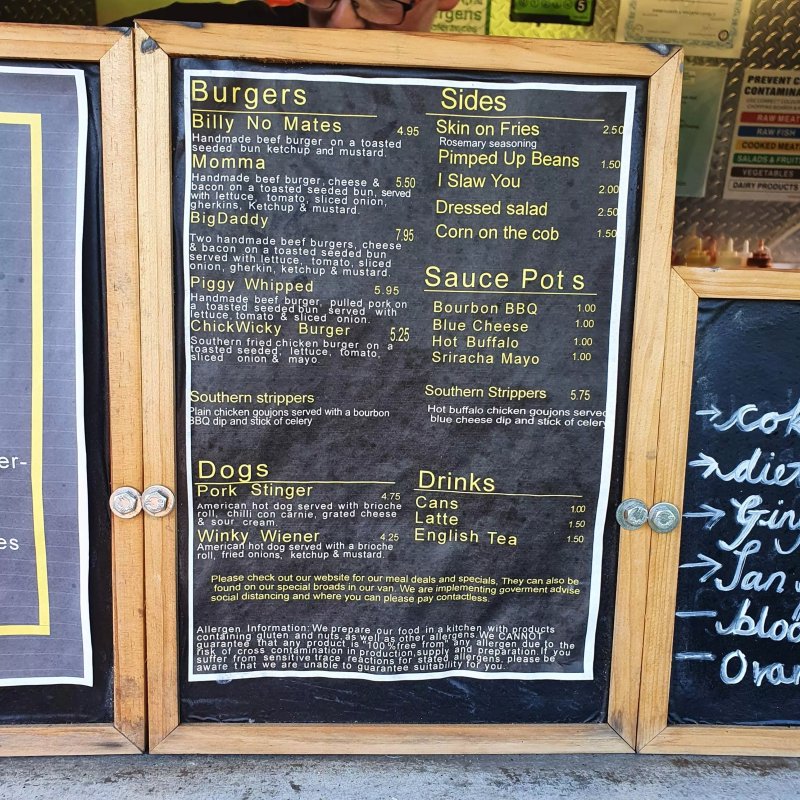 Burgers
Billy No Mates 4.95
Handmade beef burger on a toasted
seeded bun ketchup and mustard.
Momma
Handmade beef burger, cheese & 5.50
bacon on a toasted seeded bun, served
with lettuce, tomato, sliced onion,
gherkins, Ketchup & mustard.
BigDaddy
7.95
Two handmade beef burgers, cheese
& bacon on a toasted seeded bun
served with lettuce, tomato, sliced
onion, gherkin, ketchup & mustard.
Piggy Whipped 5.95
Handmade beef burger, pulled pork on
a toasted seeded bun served with
lettuce, tomato & sliced onion.
ChickWicky Burger 5.25
Southern fried chicken burger on a
toasted seeded, lettuce, tomato,
sliced onion & mayo.
Southern strippers
Plain chicken goujons served with a bourbon
BBQ dip and stick of celery
Dogs
Pork Stinger 4.75
American hot dog served with brioche
roll, chilli con carnie, grated cheese
& sour cream.
Winky Wiener 4.25
American hot dog served with a brioche
roll, fried onions, ketchup & mustard.
Sides
Skin on Fries 2.50
Rosemary seasoning
Pimped Up Beans 1.50
I Slaw You 2.00
Dressed salad 2.50
Corn on the cob 1.50
Sauce Pots
Bourbon BBQ 1.00
Blue Cheese 1.00
Hot Buffalo 1.00
Sriracha Mayo 1.00
Southern Strippers 5.75
Hot buffalo chicken goujons served
blue cheese dip and stick of celery
Drinks
Cans 1.00
Latte 1.50
English Tea 1.50
Please check out our website for our meal deals and specials, They can also be
found on our special broads in our van. We are implementing goverment advise
social distancing and where you can please pay contactless.
Allergen Information: We prepare our food in a kitchen with products
containing gluten and nuts, as well as other allergens. We CANNOT
guarantee that any product is "100 % free from" any allergen due to the
risk of cross contamination in production, supply and preparation. If you
suffer from sensitive trace reactions for stated allergens, please be
aware that we are unable to guarantee suitability for you.
er-
es
ergens
5
PREVENT C
CONTAMINA
RAW MEAT
RAW FISH
COOKED MEATS
SALADS & FRUITS
VEGETABLES
DAIRY PRODUCTS
→ cok
→ diet
→ Ging
→ San
— bloo
— Oran